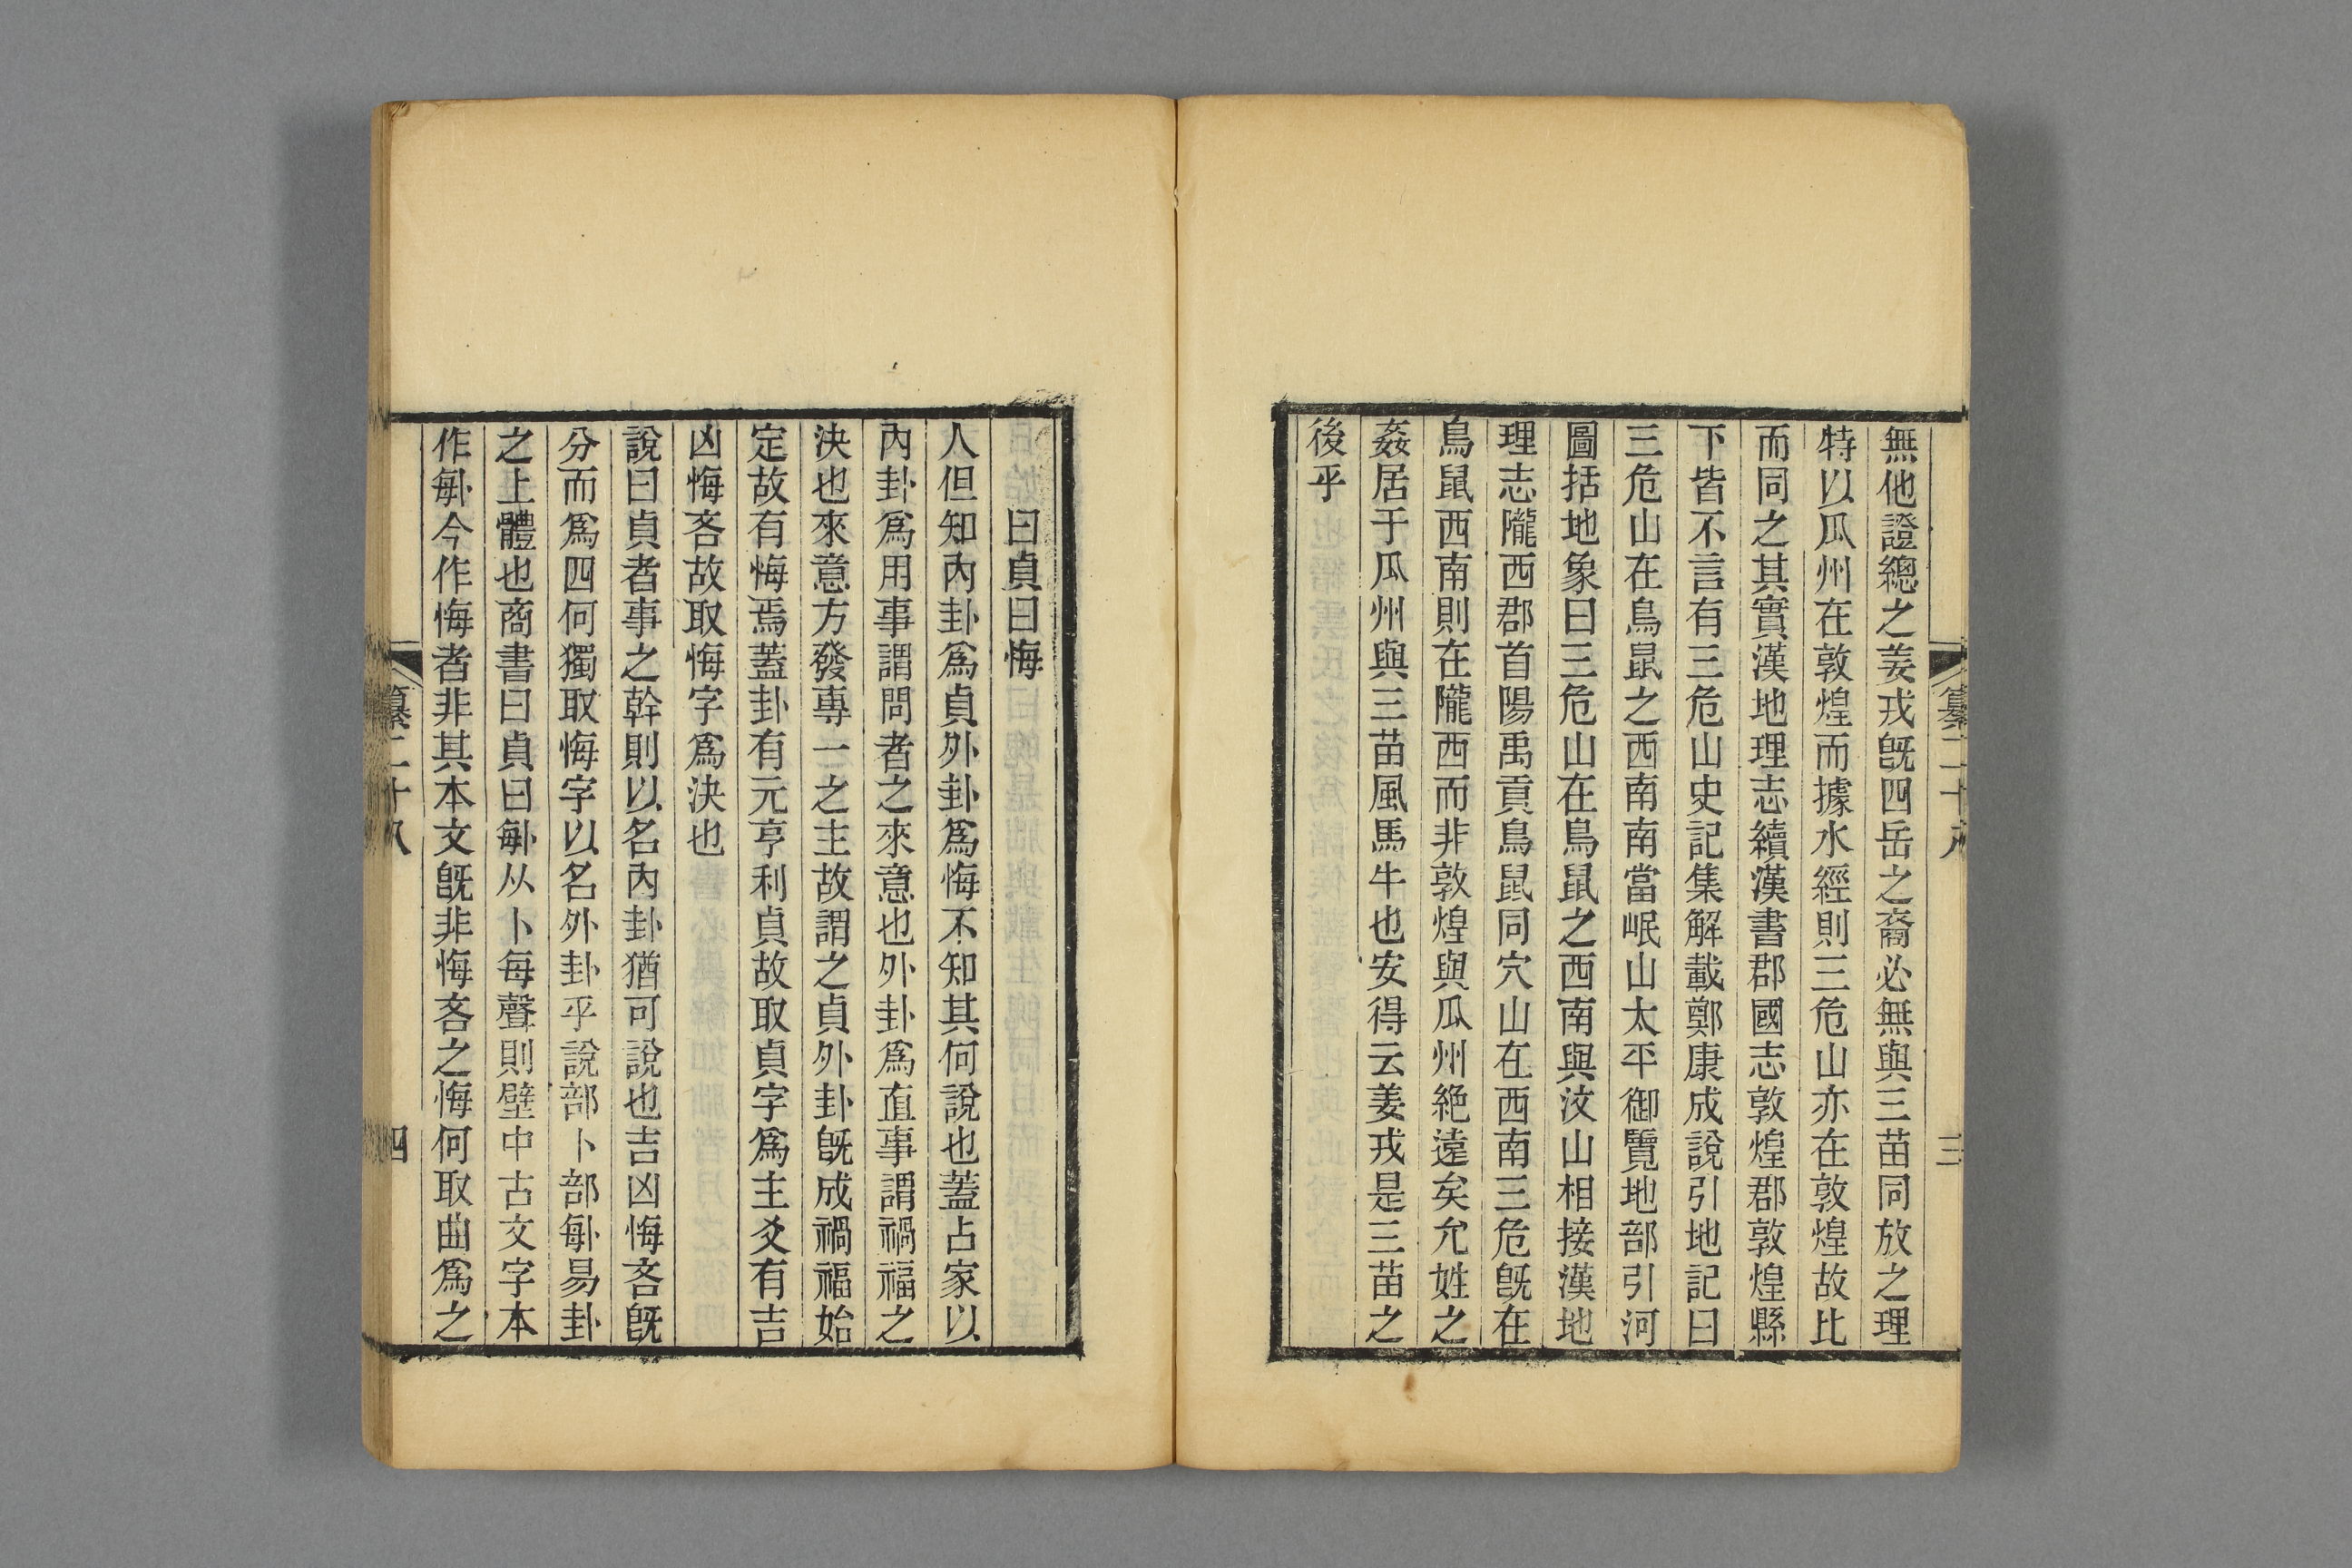 纂二十八
三
無他證總之姜戎旣四岳之裔必無與三苗同放之理
特以瓜州在敦煌而據水經則三危山亦在敦煌故比
而同之其實漢地理志續漢書郡國志敦煌郡敦煌縣
下皆不言有三危山史記集解載鄭康成說引地記曰
三危山在鳥鼠之西南南當岷山太平御覽地部引河
圖括地象曰三危山在鳥鼠之西南與汶山相接漢地
理志隴西郡首陽禹貢鳥鼠同穴山在西南三危旣在
鳥鼠西南則在隴西而非敦煌與瓜州絶遠矣允姓之
姦居于瓜州與三苗風馬牛也安得云姜戎是三苗之
後乎
曰貞曰悔
人但知內卦爲貞外卦爲悔不知其何說也蓋占家以
內卦爲用事謂問者之來意也外卦爲直事謂禍福之
決也來意方發專一之主故謂之貞外卦旣成禍福始
定故有悔焉蓋卦有元亨利貞故取貞字爲主爻有吉
凶悔吝故取悔字爲決也
說曰貞者事之幹則以名內卦猶可說也吉凶悔吝旣
分而爲四何獨取悔字以名外卦乎說部卜部𠧩易卦
之上體也商書曰貞曰𠧩从卜每聲則壁中古文字本
作𠧩今作悔者非其本文旣非悔吝之悔何取曲爲之
纂二十八
四